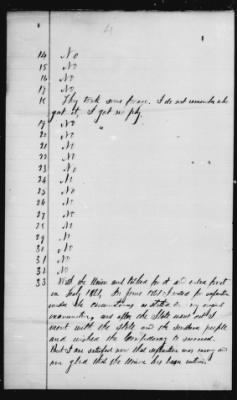 14 No
15 No
16 No
17 No
18 They took some forage. I do not remember who
got it, I got no pay.
19 No
20 No
21 No
22 No
23 No
24 No
25 No
26 No
27 No
28 No
29 No
30 No
31 No
32 No
33 With the Union and talked for it and voted for it
in Feby 1861. In June 1861 I voted for separation
under the circumstances as stated in my
examination, and after the State went out I
went with the State and the Southern people
and wished the Confederacy to succeed.
But I am satisfied now that separation was wrong and
am glad that the Union has been